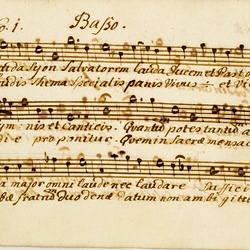 No. 1. Basso.
da Syon Salvatorem lauda Ducem et Past
laudis thema Specialis panis Vivus et Vi
ym nis et Canticis. Quantu potes tantu
die proponitur. Quem in Sacræ mensæ
a major omni laude nec laudare Suffic
fratru duodenæ datum non ambigitu